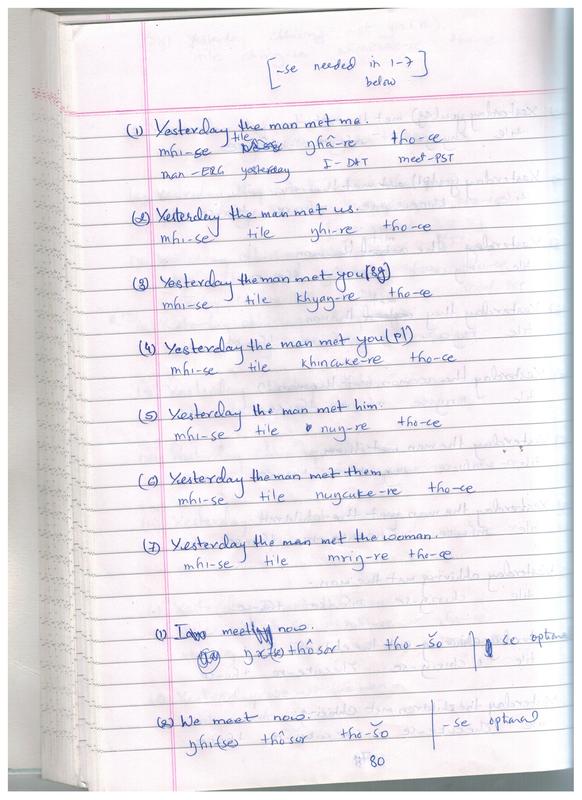 [-se needed in 1-7]
below
(1) Yesterday the man met me.
tile
mhi-se ŋhâ-re tho-ce
man-ERG yesterday I-DAT meet-PST
(2) Yesterday the man met us.
mhi-se tile ŋhi-re tho-ce
(3) Yesterday the man met you(sg)
mhi-se tile khyaŋ-re tho-ce
(4) Yesterday the man met you(pl)
mhi-se tile khincuke-re tho-ce
(5) Yesterday the man met him.
mhi-se tile nuŋ-re tho-ce
(6) Yesterday the man met them
mhi-se tile nuŋcuke-re tho-ce
(7) Yesterday the man met the woman.
mhi-se tile mriŋ-re tho-ce
(1) I meet now.
(se) thôsor tho-šo se optional
(2) We meet now.
ŋhi(se) thôsor tho-šo -se optional
80